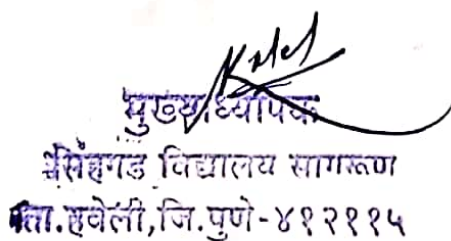 मुख्याध्यापक
सिंहगड विद्यालय सागरूण
ता.हवेली,जि.पुणे-४१२११५